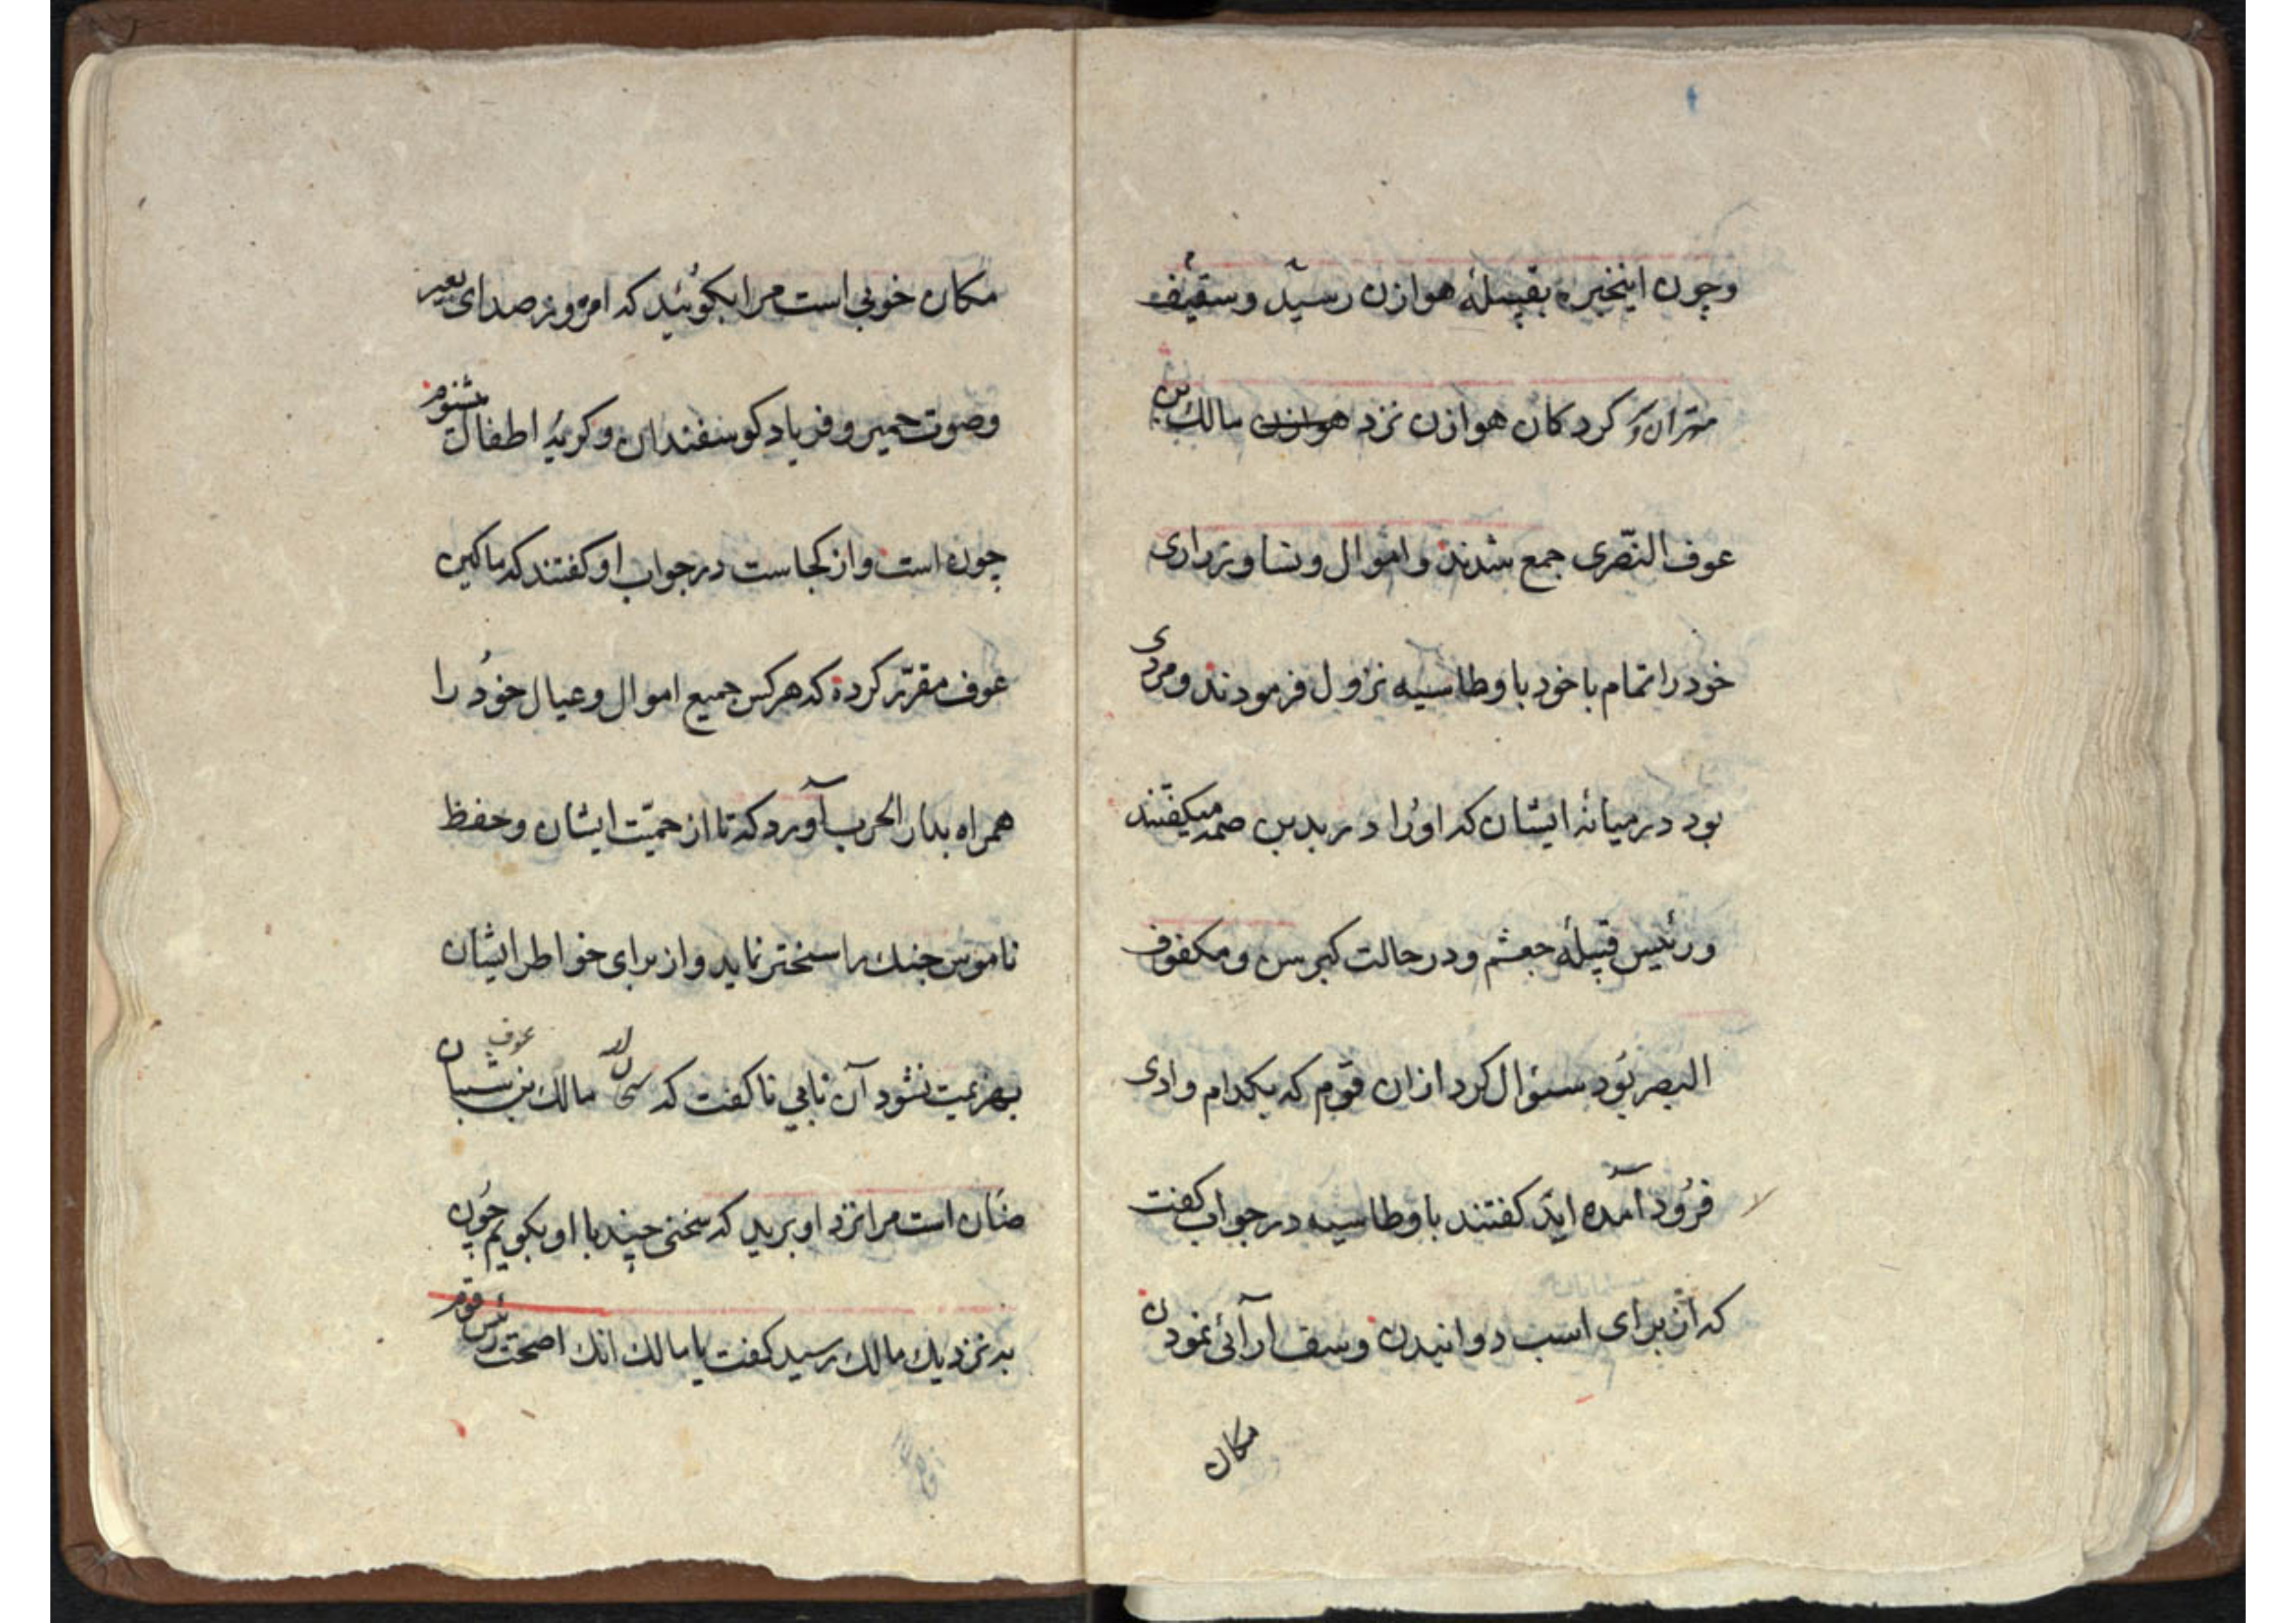 وچون اینخبره بقبیلهٔ هوازن رسید وسقیف
متران و کردکان هوازن نزد هوازن مالك بن
عوف النّصری جمع شدند و اموال ونسا وزراری
خود را تمام با خود باوطاسیه نزول فرمودند ومردی
بود درمیانهٔ ایشان که اورا درید بن صمه میکفتند
ورئیس قبیلهٔ جعشم ودرحالت کبر سن ومکفوف
البصر بود سئوال کرد ازان قوم که بکدام وادی
فرود آمده اید کفتند باوطاسیه درجواب کفت
که آن برای اسب دوانیدن وسف آرائی نمودن
مکان
مکان خوبی است مرا بکوئید که امروز صدای بعیر
وصوت حمیر وفریاد کوسفندان وکریهٔ اطفال مشنوم
چون است واز کجاست درجواب او کفتند که مالکبن
عوف مقرّر کرده که هرکس جمیع اموال وعیال خود را
همراه بدار الحرب آورد که تا از حمیّت ایشان وحفظ
ناموس جنك را سختر نماید واز برای خواطر ایشان
بهزیمت نشود آن نابی نا کفت که مالك بن عوف شبان
ضئان است مرا نزد او برید که سخنی چند با او بکویم چون
به نزدیك مالك رسید کفت یا مالك انك اصحت رئیس قوم